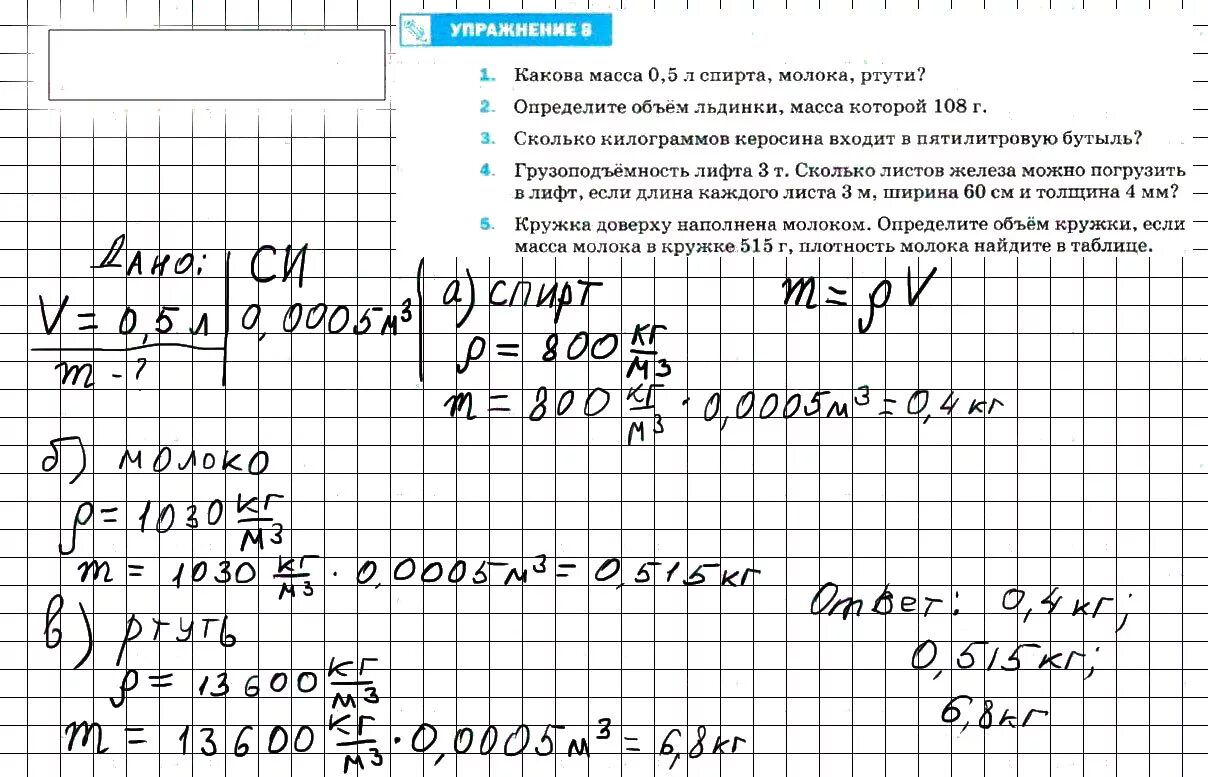 УПРАЖНЕНИЕ 8
1. Какова масса 0,5 л спирта, молока, ртути?
2. Определите объём льдинки, масса которой 108 г.
3. Сколько килограммов керосина входит в пятилитровую бутыль?
4. Грузоподъёмность лифта 3 т. Сколько листов железа можно погрузить
в лифт, если длина каждого листа 3 м, ширина 60 см и толщина 4 мм?
5. Кружка доверху наполнена молоком. Определите объём кружки, если
масса молока в кружке 515 г, плотность молока найдите в таблице.
Дано: СИ
V = 0,5 л 0,0005 м³
m - ?
а) спирт m = ρV
ρ = 800 кг/м³
m = 800 кг/м³ · 0,0005 м³ = 0,4 кг
б) молоко
ρ = 1030 кг/м³
m = 1030 кг/м³ · 0,0005 м³ = 0,515 кг
в) ртуть
ρ = 13600 кг/м³
m = 13600 кг/м³ · 0,0005 м³ = 6,8 кг
Ответ: 0,4 кг;
0,515 кг;
6,8 кг